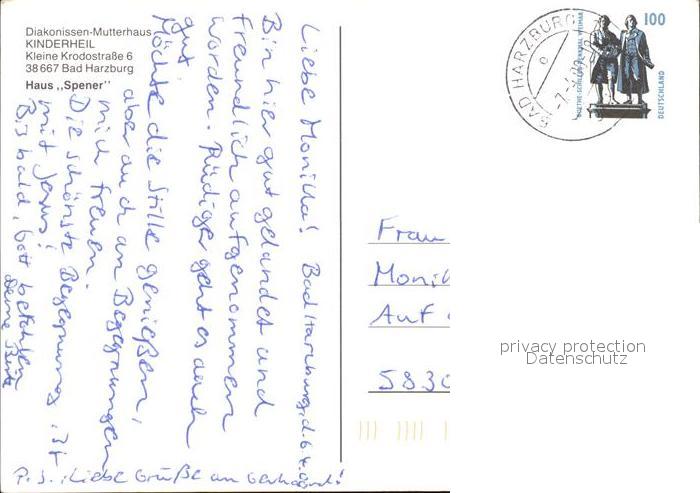 Diakonissen-Mutterhaus
KINDERHEIL
Kleine Krodostraße 6
38667 Bad Harzburg
Haus „Spener"
Liebe Monika! Bad Harzburg, d. 6.4.
Bin hier gut gelandet und
freundlich aufgenommen
worden. Rüdiger geht es auch
gut.
Möchte die Stille genießen,
aber auch an Begegnungen
mich freuen.
Die schönste Begegnung ist
mit Jesus!
Bis bald, Gott befohlen
Deine
P.S.: Liebe Grüße an Gerhard!
BAD HARZBURG
GOETHE-SCHILLER-DENKMAL WEIMAR
100
DEUTSCHLAND
Frau
Monik
Auf
5830
privacy protection
Datenschutz